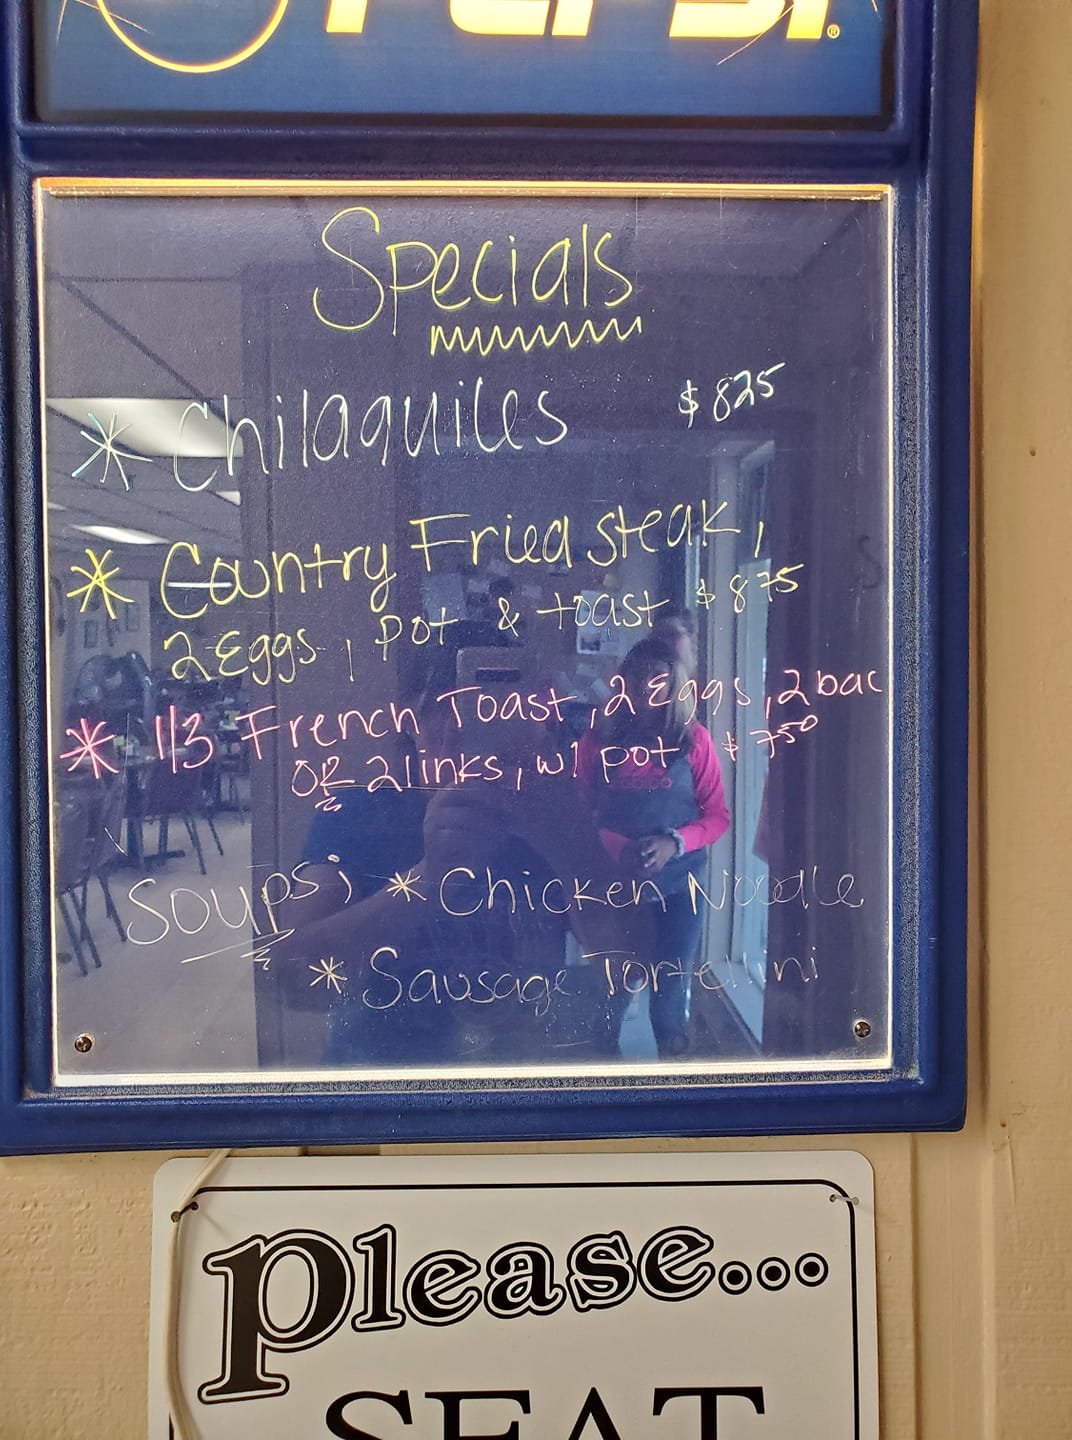 PEPSI®
Specials
* Chilaquiles $825
* Country Fried steak,
2 Eggs, pot & toast $875
* 1/3 French Toast, 2 Eggs, 2 bac
OR 2 links, w/ pot $750
Soups; * Chicken Noodle
* Sausage Tortellini
please...
SEAT